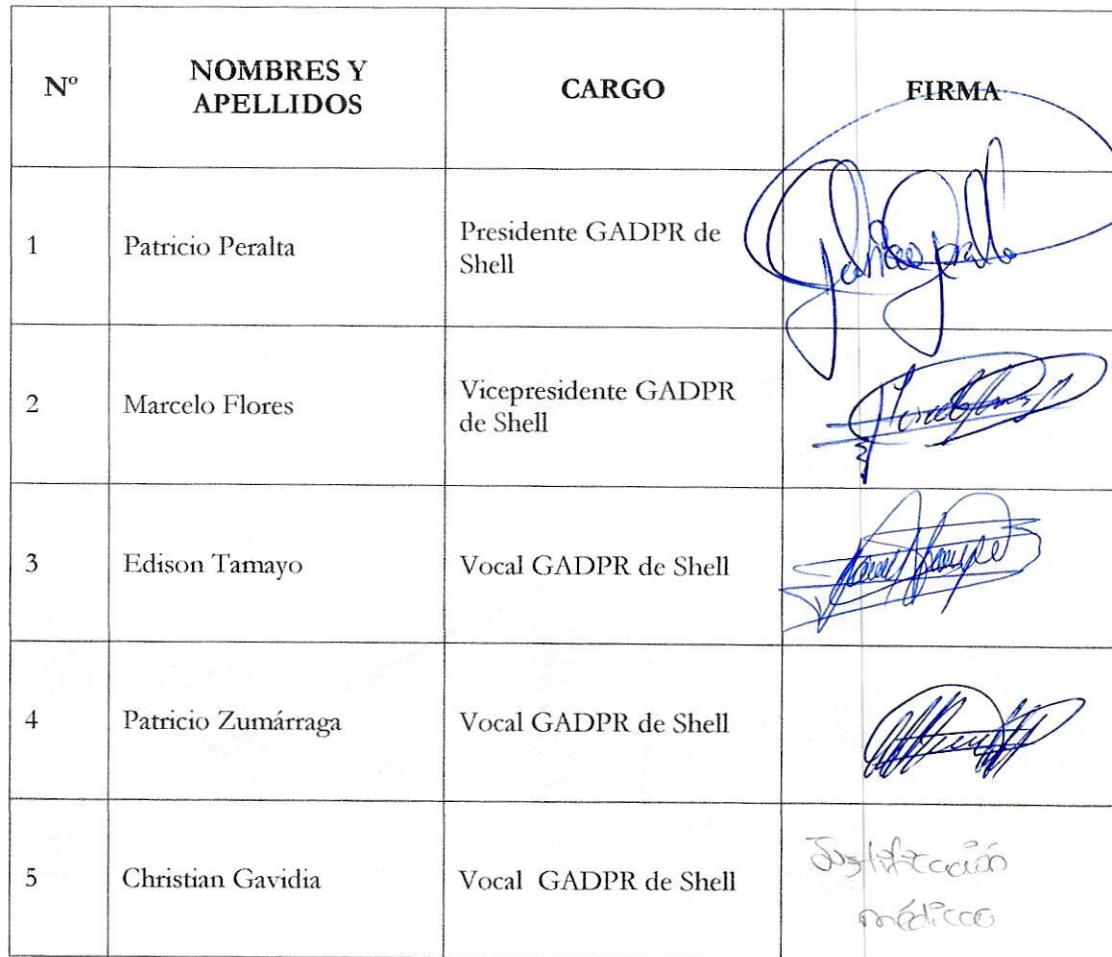 Nº
NOMBRES Y
APELLIDOS
CARGO
FIRMA
1
Patricio Peralta
Presidente GADPR de
Shell
2
Marcelo Flores
Vicepresidente GADPR
de Shell
3
Edison Tamayo
Vocal GADPR de Shell
4
Patricio Zumárraga
Vocal GADPR de Shell
5
Christian Gavidia
Vocal GADPR de Shell
Justificación
médico